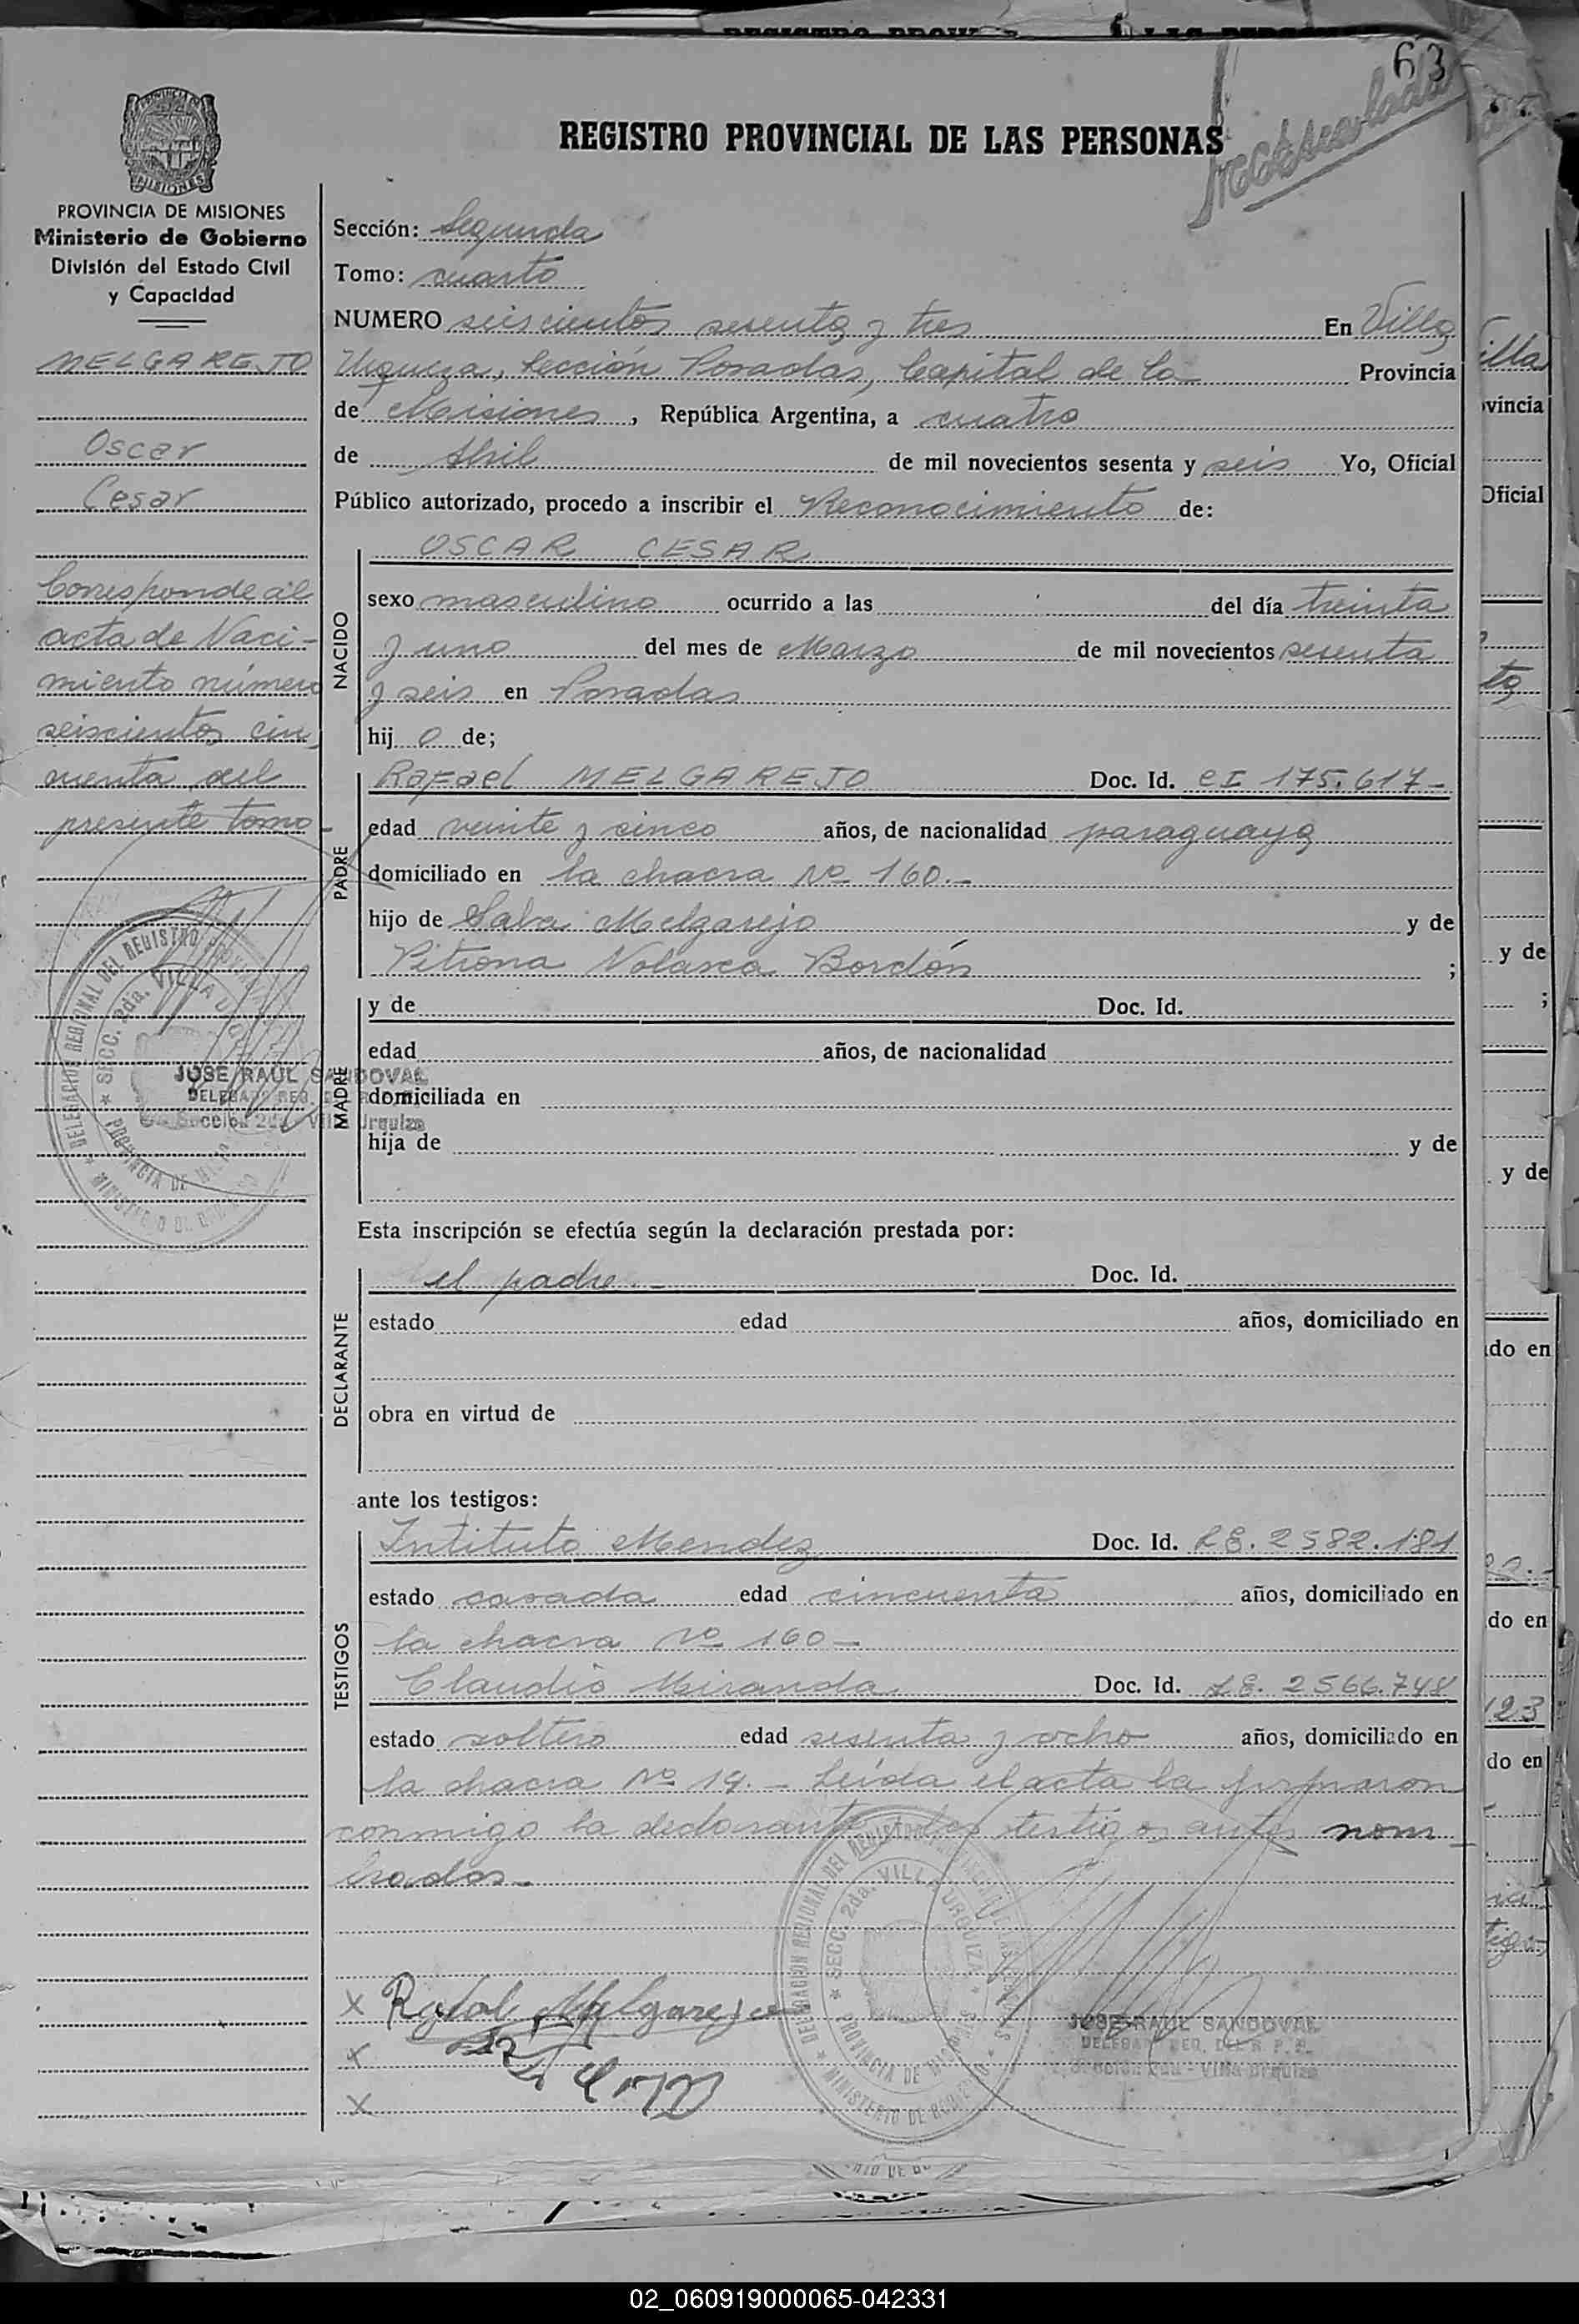 63
REGISTRO PROVINCIAL DE LAS PERSONAS
PROVINCIA DE MISIONES
Ministerio de Gobierno
División del Estado Civil
y Capacidad
MELGAREJO
Oscar
Cesar
Corresponde al
acta de Naci-
miento número
seiscientos cin
cuenta del
presente tomo
Sección: Segunda
Tomo: cuarto
NUMERO seiscientos sesenta y tres En Villa
Urquiza, Sección Posadas, Capital de la Provincia
de Misiones, República Argentina, a cuatro
de Abril de mil novecientos sesenta y seis Yo, Oficial
Público autorizado, procedo a inscribir el Reconocimiento de:
NACIDO
OSCAR CESAR
sexo masculino ocurrido a las del día treinta
y uno del mes de Marzo de mil novecientos sesenta
y seis en Posadas
hij o de;
PADRE
Rafael MELGAREJO Doc. Id. CI 175.617-
edad veinte y cinco años, de nacionalidad paraguaya
domiciliado en la chacra No 160.-
hijo de Salva Melgarejo y de
Pitrona Nolasca Bordón ;
MADRE
y de Doc. Id.
edad años, de nacionalidad
domiciliada en
hija de y de
Esta inscripción se efectúa según la declaración prestada por:
DECLARANTE
el padre.- Doc. Id.
estado edad años, domiciliado en
obra en virtud de
ante los testigos:
TESTIGOS
Intituto Mendez Doc. Id. LE. 2582.181
estado casada edad cincuenta años, domiciliado en
la chacra No 160-
Claudio Miranda Doc. Id. LE. 2566.748
estado soltero edad sesenta y ocho años, domiciliado en
la chacra No 19.- Leída el acta la firmaron
conmigo la declarante y los testigos antes nom-
brados.-
x Rafael Melgarejo
x
x
DELEGACION REGIONAL DEL REGISTRO PROVINCIAL DE LAS PERSONAS
SECC. 2da. VILLA URQUIZA
PROVINCIA DE MISIONES
MINISTERIO DE GOBIERNO
JOSE RAUL SANDOVAL
DELEGADO REG. DEL R. P. P.
Sección 2da - Villa Urquiza
JOSE RAUL SANDOVAL
DELEGADO REG. DEL R. P. P.
Sección 2da - Villa Urquiza
02_060919000065-042331